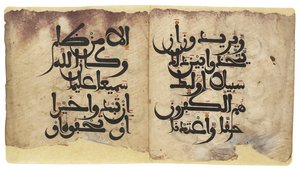 ويريدون ان
يتخذوا بين ذلك
سبيلا اولئك
هم الكفرون
حقا واعتدنا
الا من ظلم
وكان الله
سميعا عليما
ان تبدوا خيرا
او تخفوه او